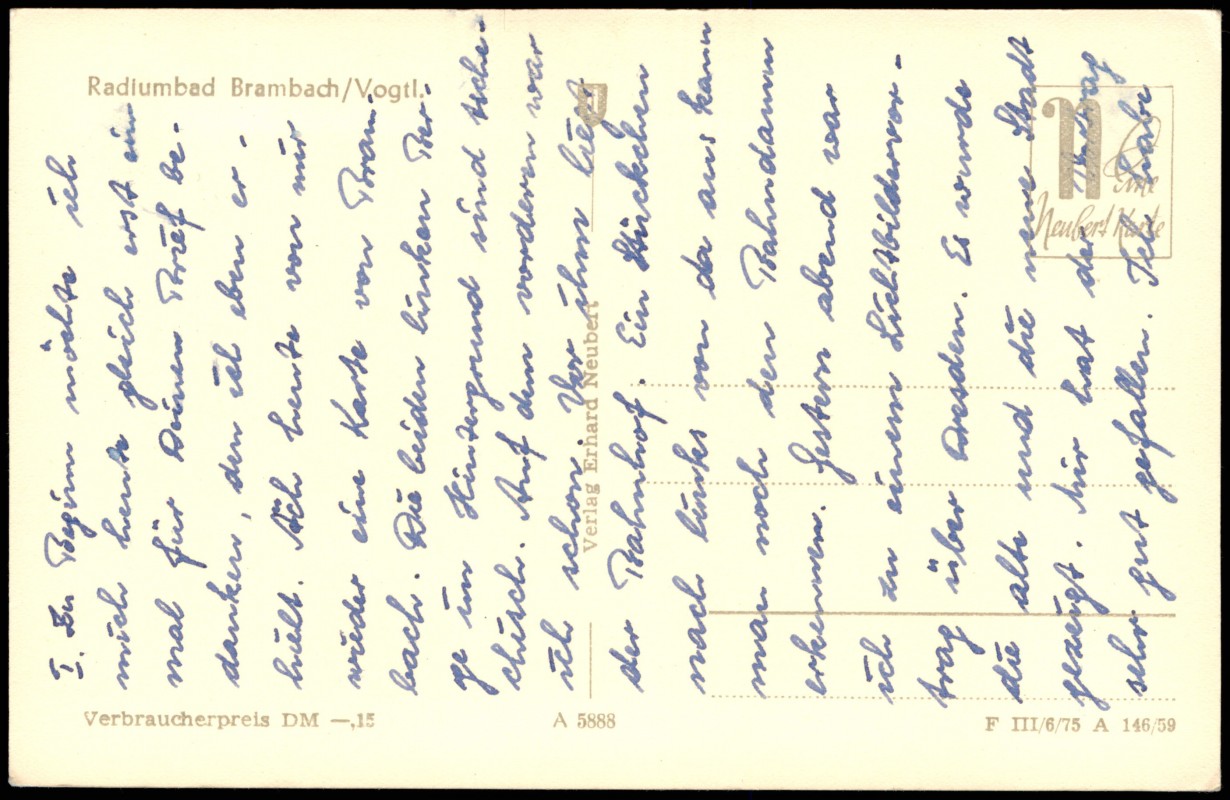 Radiumbad Brambach/Vogtl.
Eine
Neubert Karte
I. Zu Beginn möchte ich
mich heute gleich erst ein
mal für Deinen Brief be-
danken, den ich eben er-
hielt. Ich heute von mir
wieder eine Karte von Bram-
bach. Die beiden linken Ber-
ge im Hintergrund sind tsche-
chisch. Auf dem vorderen war
ich schon. Vor ihm liegt
der Bahnhof. Ein Stückchen
nach links von da aus kann
man noch den Bahndamm
erkennen. Gestern abend war
ich zu einem Lichtbildervor-
trag über Dresden. Es wurde
die alte und die neue Stadt
gezeigt. Mir hat der Vortrag
sehr gut gefallen. Ich habe
Verlag Erhard Neubert
Verbraucherpreis DM —,15
A 5888
F III/6/75 A 146/59